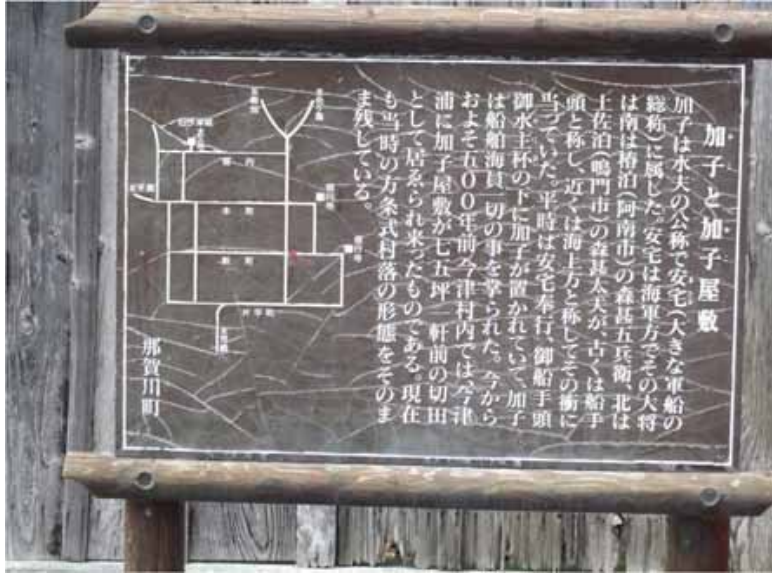 加子と加子屋敷
加子は水夫の公称で安宅(大きな軍船の
総称)に属した。安宅は海軍方でその大将
は南は椿泊(阿南市)の森甚五兵衛、北は
土佐泊(鳴門市)の森甚太夫が、古くは船手
頭と称し、近くは海上方と称してその衝に
当っていた。平時は安宅奉行、御船手頭
御水主杯の下に加子が置かれていて、加子
は船舶海員一切の事を掌られた。今から
およそ五〇〇年前今津村内では、今津
浦に加子屋敷が七五坪一軒前の切田
として居ゑられ来ったものである。現在
も当時の方条式村落の形態をそのま
ま残している。
本町
新町
片平町
那賀川町